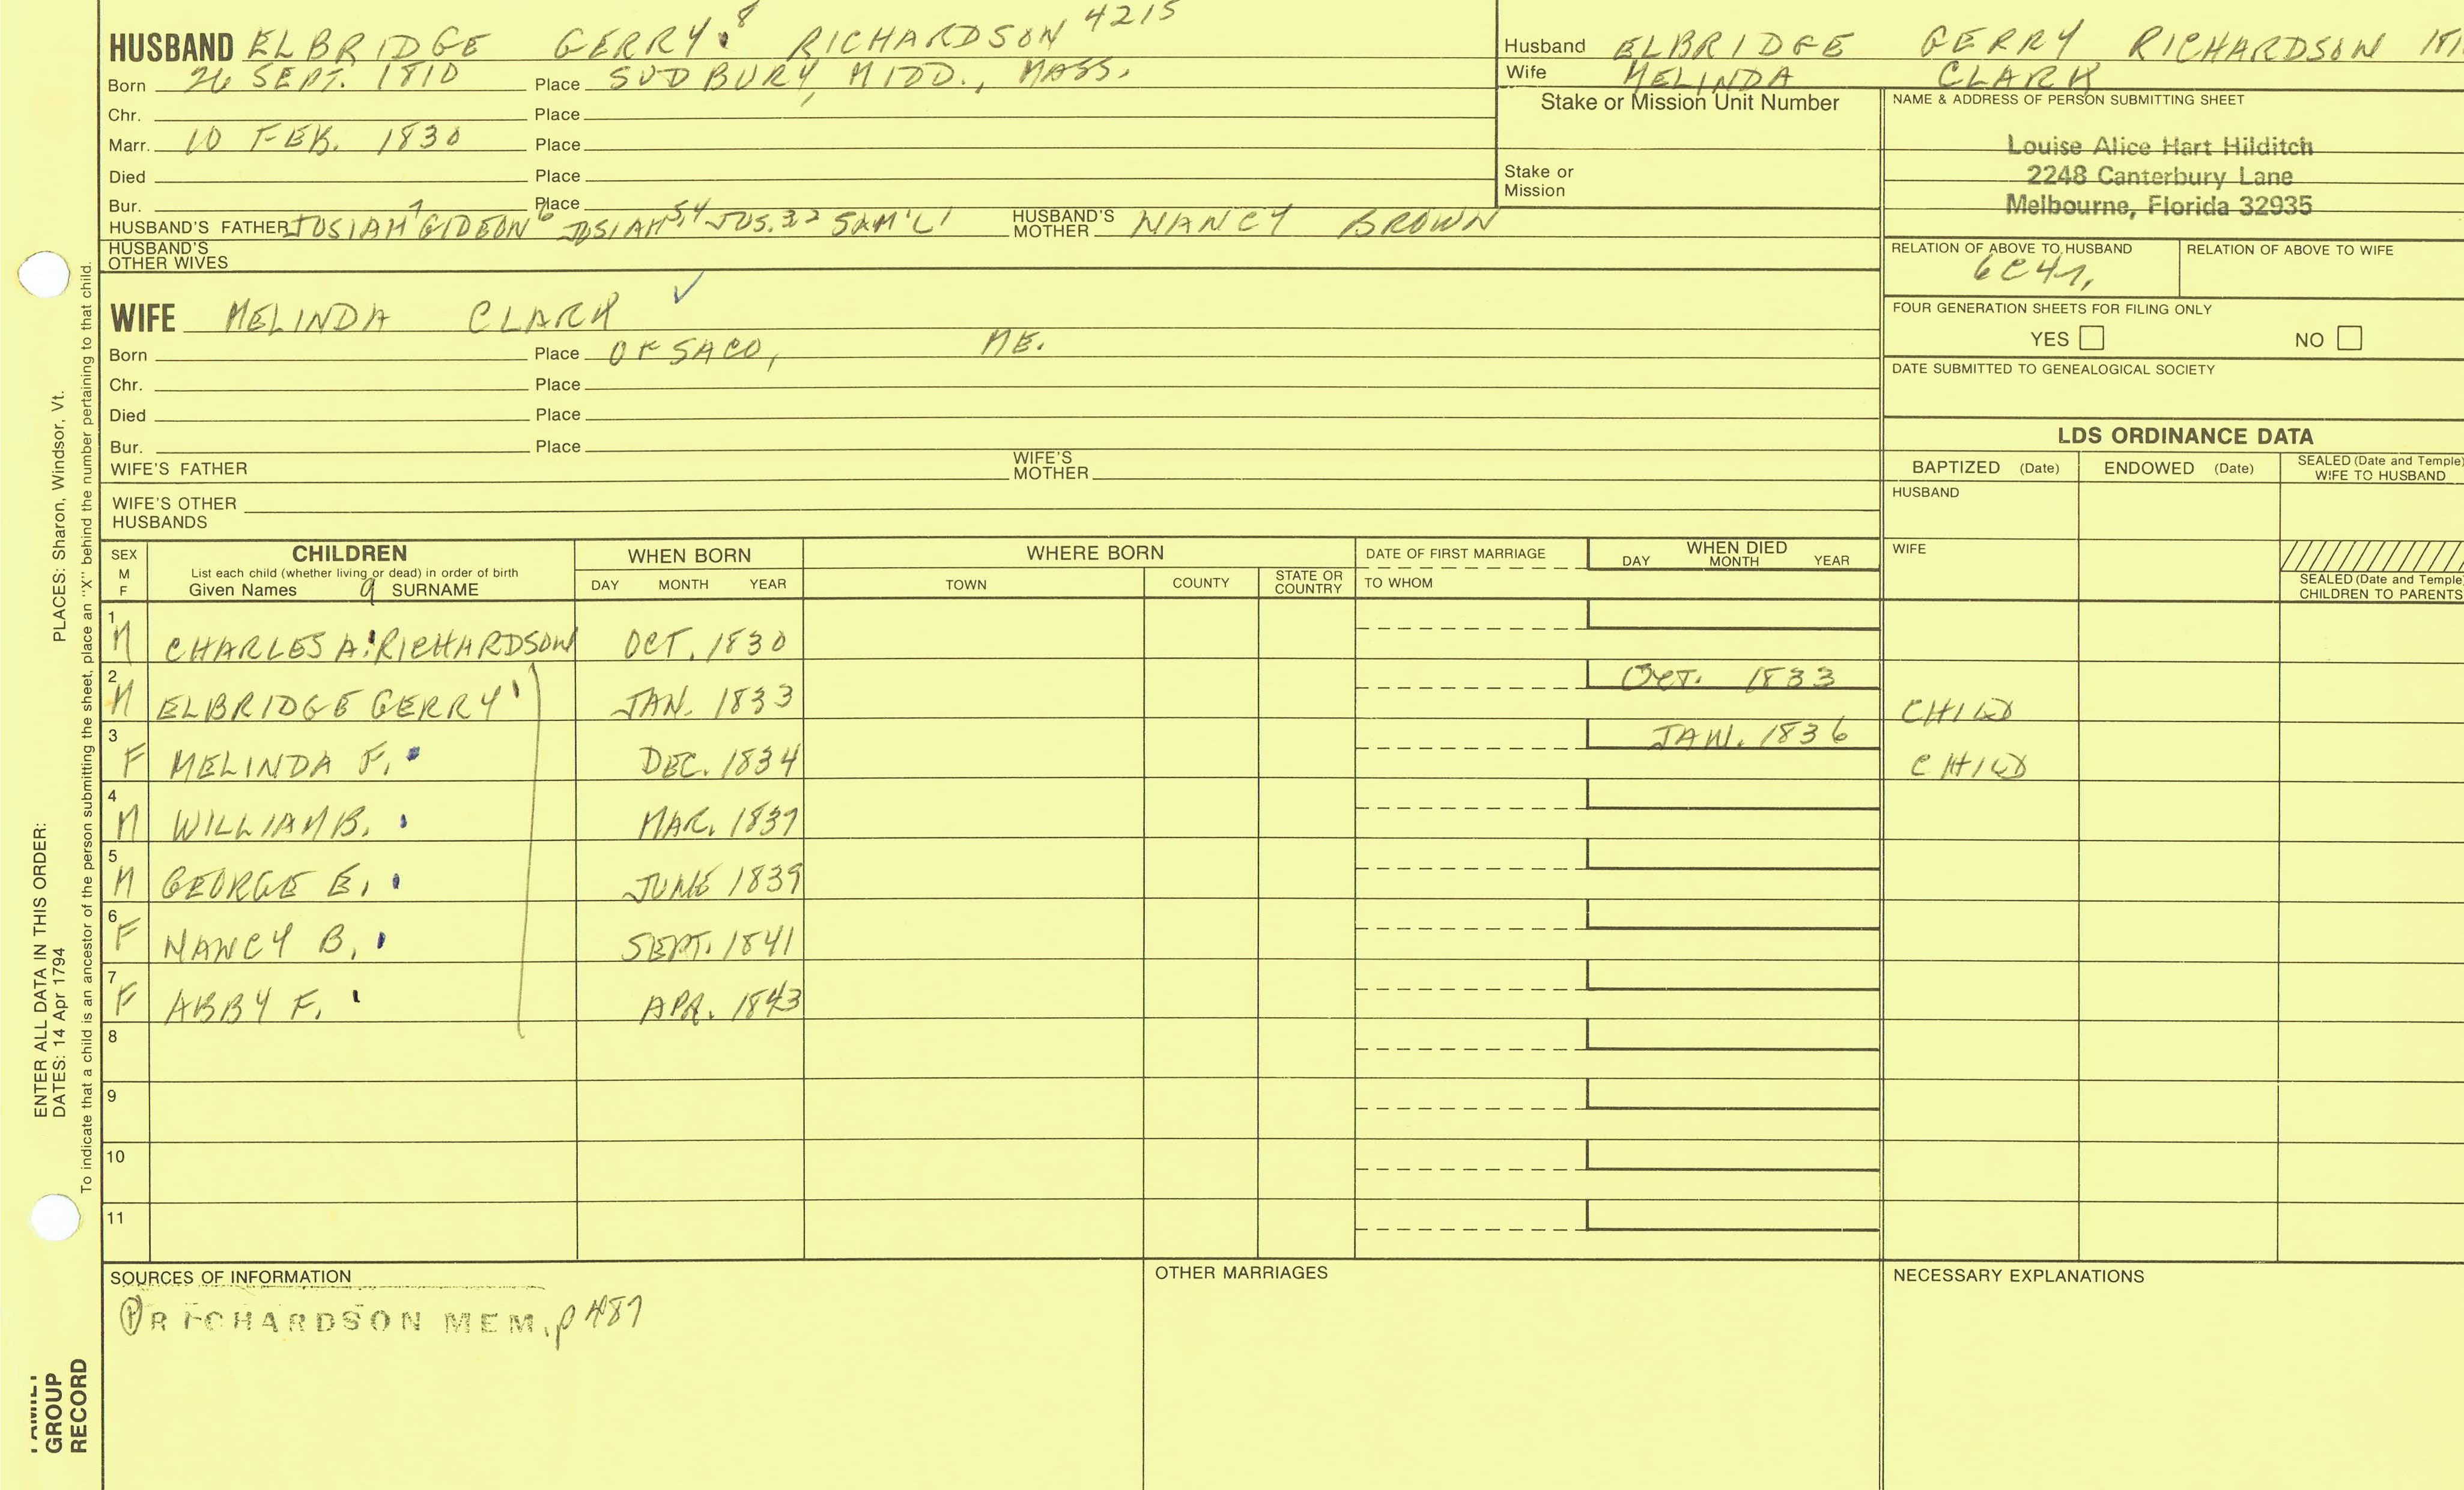 HUSBAND ELBRIDGE GERRY 8 RICHARDSON 4215
Born 26 SEPT. 1810 Place SUDBURY, MIDD., MASS.
Chr. Place
Marr. 10 FEB. 1830 Place
Died Place
Bur. Place
HUSBAND'S FATHER JOSIAH 7 GIDEON 6 JOSIAH 5,4 JOS. 3,2 SAM'L 1 HUSBAND'S MOTHER NANCY BROWN
HUSBAND'S OTHER WIVES
Husband ELBRIDGE GERRY RICHARDSON 181
Wife MELINDA CLARK
Stake or Mission Unit Number
Stake or Mission
NAME & ADDRESS OF PERSON SUBMITTING SHEET
Louise Alice Hart Hilditch
2248 Canterbury Lane
Melbourne, Florida 32935
RELATION OF ABOVE TO HUSBAND RELATION OF ABOVE TO WIFE
6C4r,
WIFE MELINDA CLARK ✓
Born Place OF SACO, ME.
Chr. Place
Died Place
Bur. Place
WIFE'S FATHER WIFE'S MOTHER
WIFE'S OTHER HUSBANDS
FOUR GENERATION SHEETS FOR FILING ONLY
YES NO
DATE SUBMITTED TO GENEALOGICAL SOCIETY
LDS ORDINANCE DATA
BAPTIZED (Date) ENDOWED (Date) SEALED (Date and Temple) WIFE TO HUSBAND
HUSBAND
WIFE
SEALED (Date and Temple) CHILDREN TO PARENTS
SEX M F
CHILDREN
List each child (whether living or dead) in order of birth
Given Names 9 SURNAME
WHEN BORN
DAY MONTH YEAR
WHERE BORN
TOWN COUNTY STATE OR COUNTRY
DATE OF FIRST MARRIAGE
TO WHOM
WHEN DIED
DAY MONTH YEAR
1 M CHARLES A. RICHARDSON OCT. 1830
2 M ELBRIDGE GERRY JAN. 1833 OCT. 1833 CHILD
3 F MELINDA F. DEC. 1834 JAN. 1836 CHILD
4 M WILLIAM B. MAR. 1837
5 M GEORGE E. JUNE 1839
6 F NANCY B. SEPT. 1841
7 F ABBY F. APR. 1843
8
9
10
11
SOURCES OF INFORMATION
P RICHARDSON MEM. p 487
OTHER MARRIAGES
NECESSARY EXPLANATIONS
ENTER ALL DATA IN THIS ORDER:
DATES: 14 Apr 1794 PLACES: Sharon, Windsor, Vt.
To indicate that a child is an ancestor of the person submitting the sheet, place an "X" behind the number pertaining to that child.
FAMILY GROUP RECORD